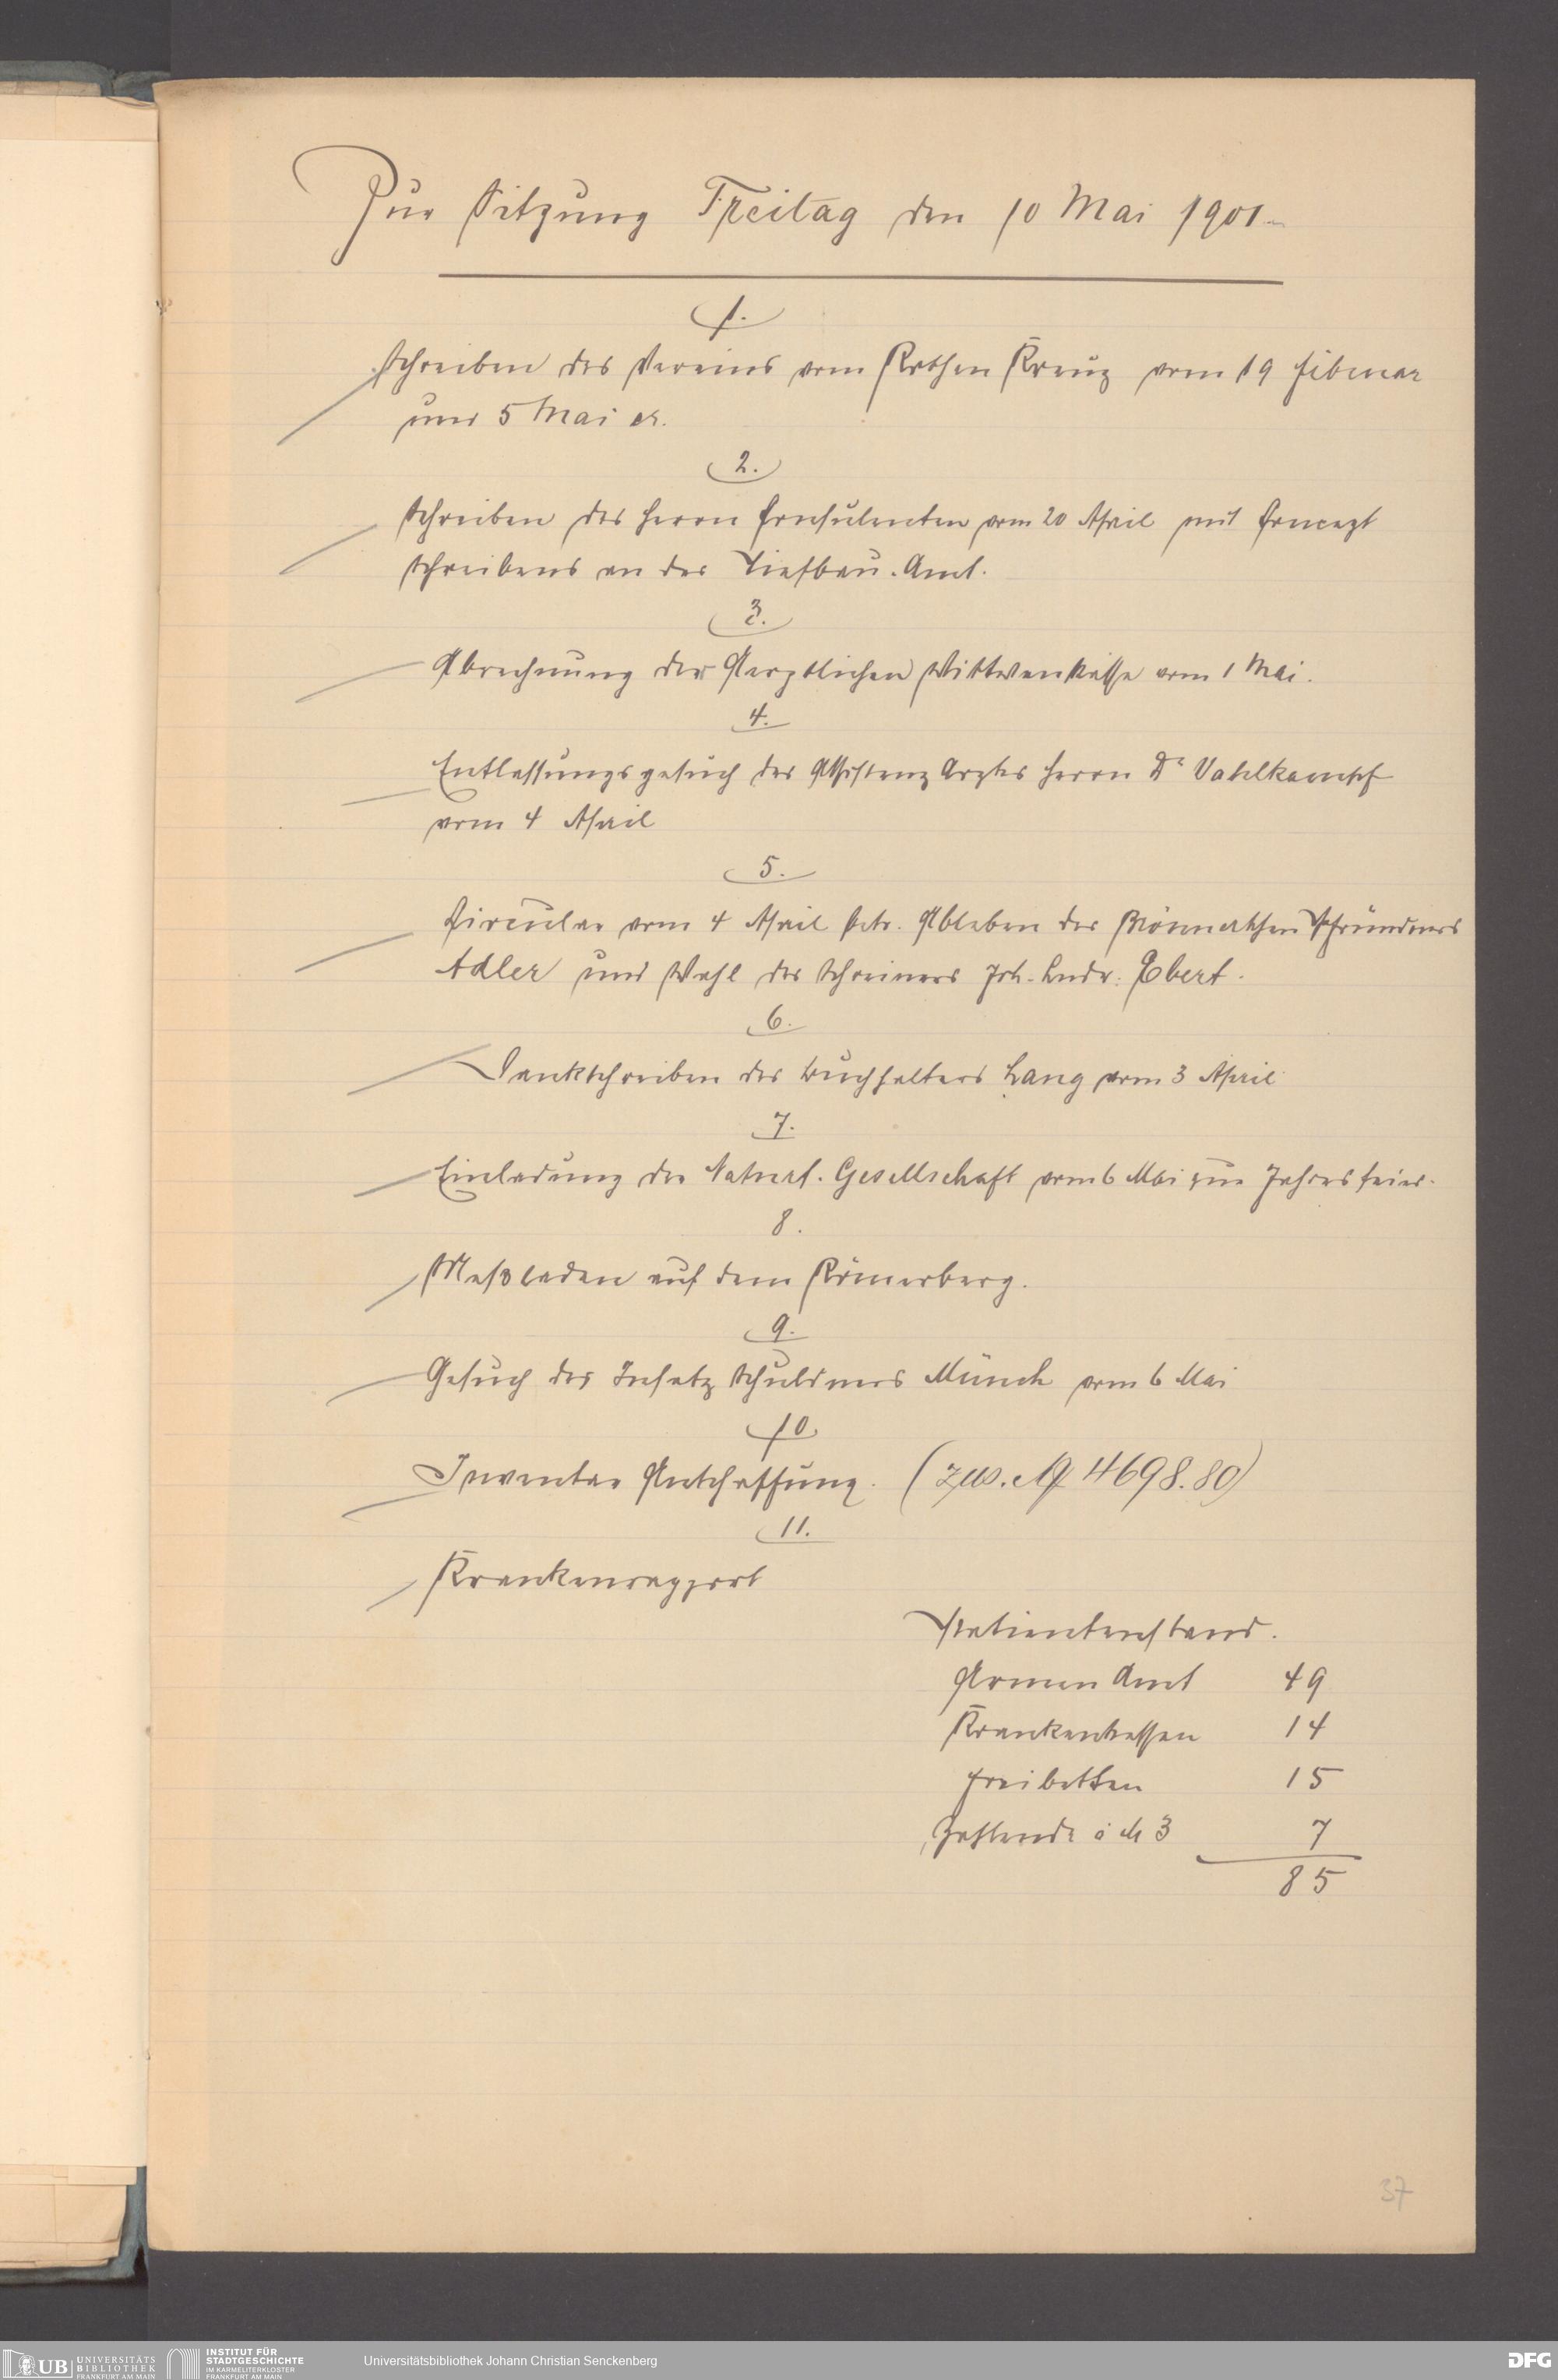 Zur Sitzung Freitag den 10 Mai 1901
1.
Schreiben des Vereins vom Rothen Kreuz vom 19 Februar
und 5 Mai cr.
2.
Schreiben des Herrn Consulenten vom 20 April mit Concept
Schreibens an das Tiefbau-Amt.
3.
Abrechnung der Aerztlichen Wittwenkasse vom 1 Mai.
4.
Entlassungsgesuch des Assistenz Arztes Herrn Dr Vahlkampf
vom 4 April
5.
Circular vom 4 April betr. Ableben des Pfründners
Adler und Wahl des Schreiners Joh. Andr. Ebert.
6.
Dankschreiben des Buchhalters Lang vom 3 April
7.
Einladung der Naturf. Gesellschaft vom 6 Mai zur Jahresfeier.
8.
Meßladen auf dem Römerberg.
9.
Gesuch des Insatz Schuldners Münch vom 6 Mai
10.
Inventar Anschaffung. (zus. M 4698.80)
11.
Krankenrapport
Patientenstand.
Armen Amt 49
Krankenkassen 14
Freibetten 15
Zahlende à M 3 7
85
37
UB UNIVERSITÄTS
BIBLIOTHEK
FRANKFURT AM MAIN
INSTITUT FÜR
STADTGESCHICHTE
IM KARMELITERKLOSTER
FRANKFURT AM MAIN
Universitätsbibliothek Johann Christian Senckenberg
DFG